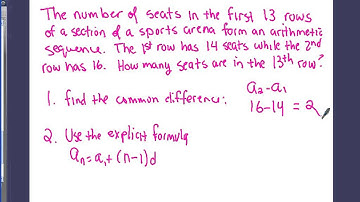 The number of seats in the first 13 rows
of a section of a sports arena form an arithmetic
sequence. The 1st row has 14 seats while the 2nd
row has 16. How many seats are in the 13th row?
1. find the common difference:
a2-a1
16-14 = 2
2. Use the explicit formula
an=a1+(n-1)d